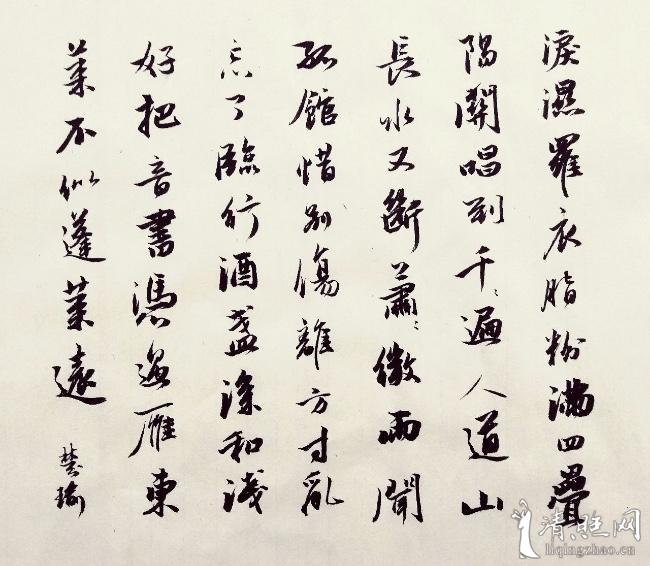 淚濕羅衣脂粉滿四疊
陽關唱到千〻遍人道山
長水又斷蕭〻微雨聞
孤館惜別傷離方寸亂
忘了臨行酒盞深和淺
好把音書憑過雁東
萊不似蓬萊遠
清照网
liqingzhao.cn